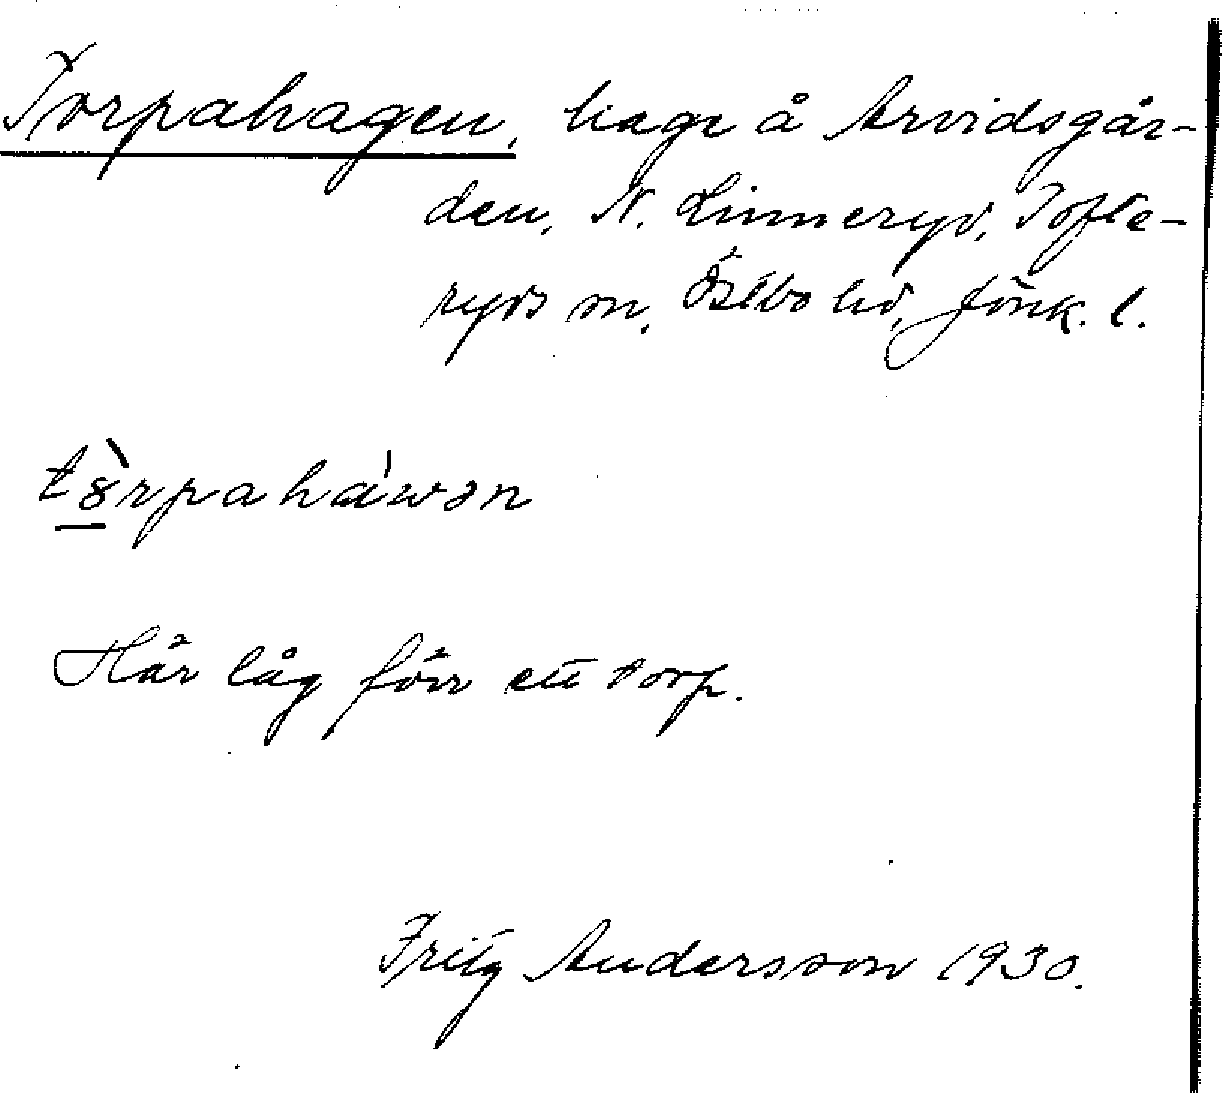 Torpahagen, hage å Arvidsgår-
den, N. Linneryd, Tofte-
ryds sn, Östbo hd, Jönk. l.
tȣ̀rpahàwən
Här låg förr ett torp.
Fritz Andersson 1930.